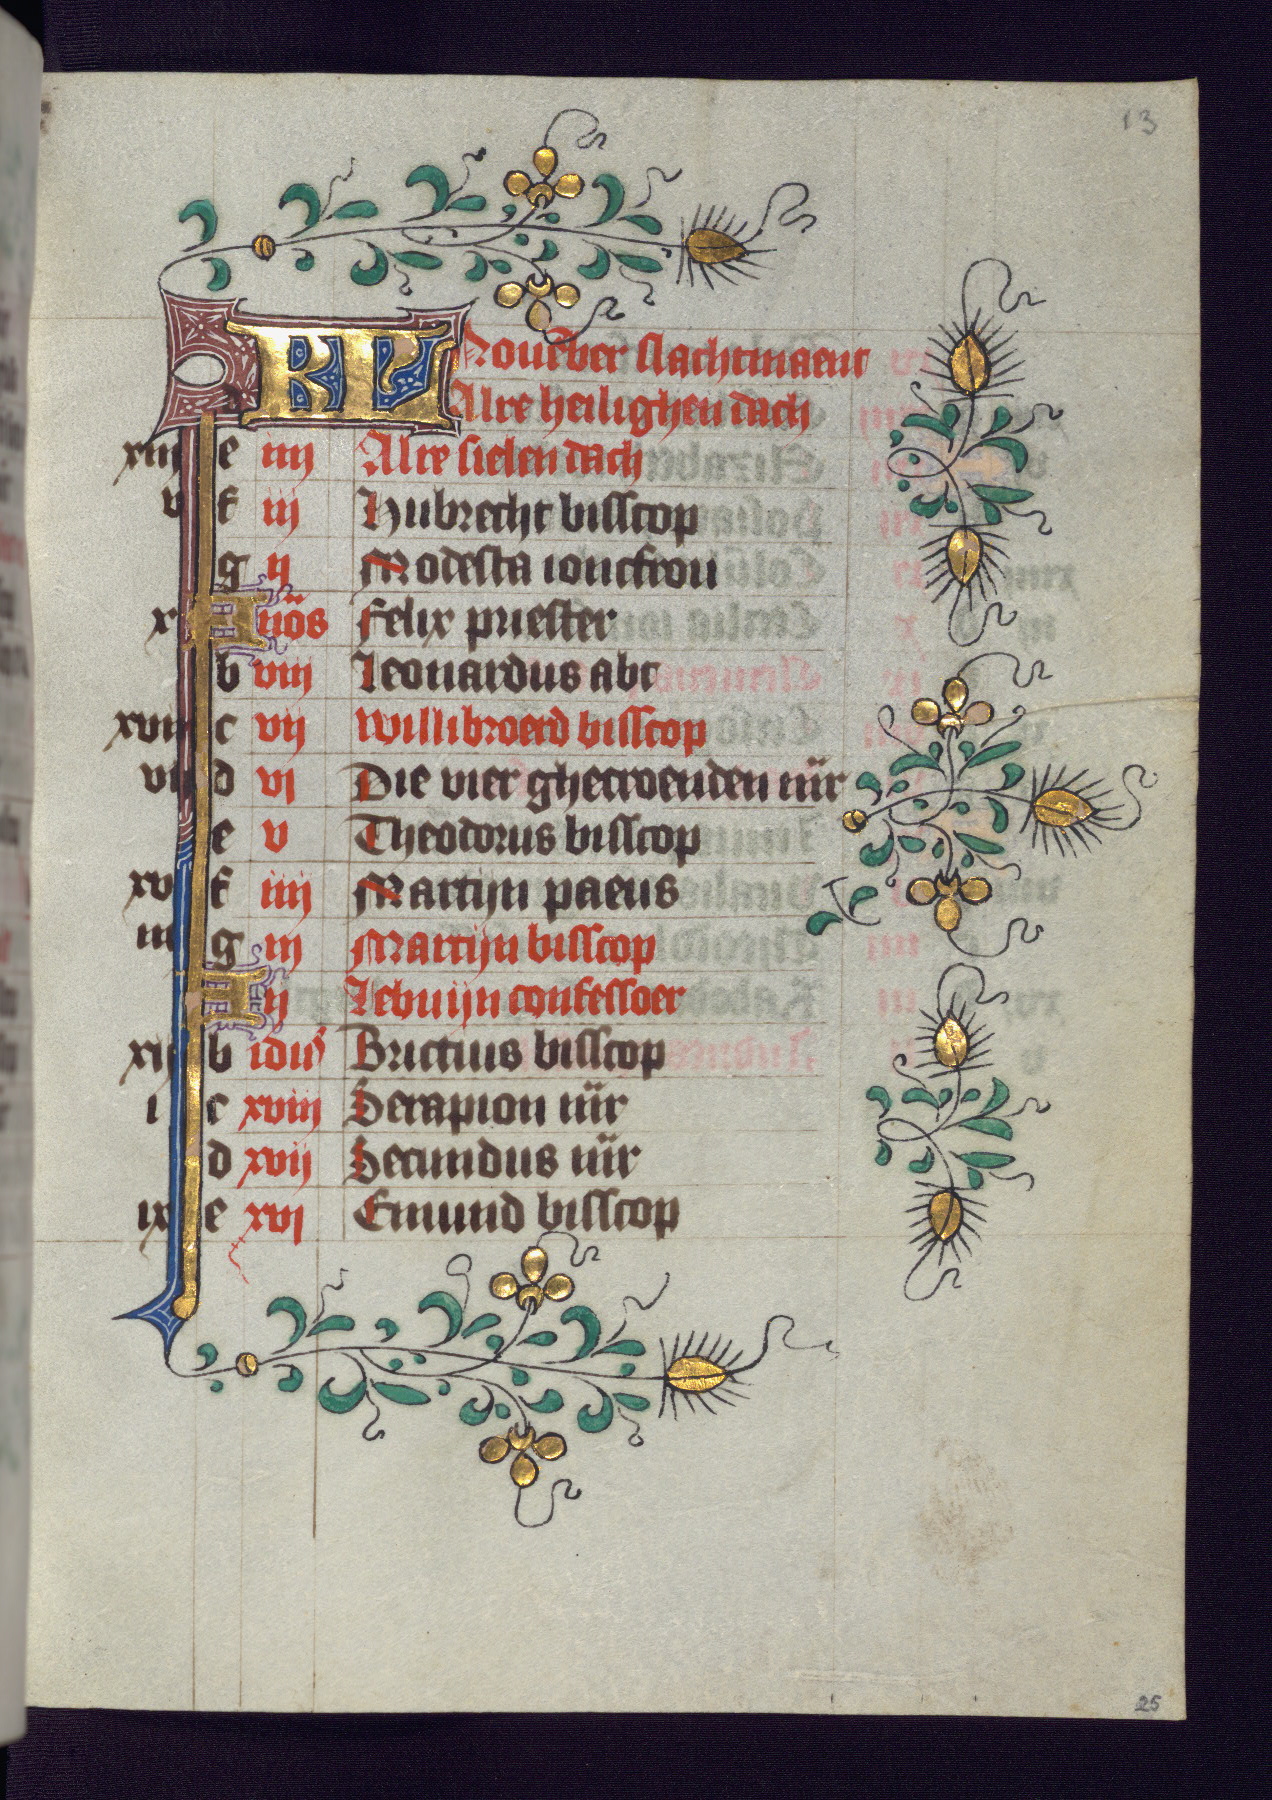 13
KL Nouēber slachtmaent
Alre heilighen dach
xiii e iiii Alre sielen dach
v f iii Hubrecht bisscop
g ii Modesta ioncfrou
x A nōs Felix priester
b viii Leonardus abt
xviii c vii Willibroerd bisscop
vii d vi Die vier ghecroenden mr̄
e v Theodorus bisscop
xv f iiii Martijn paeus
iiii g iii Martijn bisscop
A ii Lebuijn confessoer
xii b idus Brictius bisscop
i c xviii Serapion mr̄
d xvii Secundus mr̄
ix e xvi Emund bisscop
25